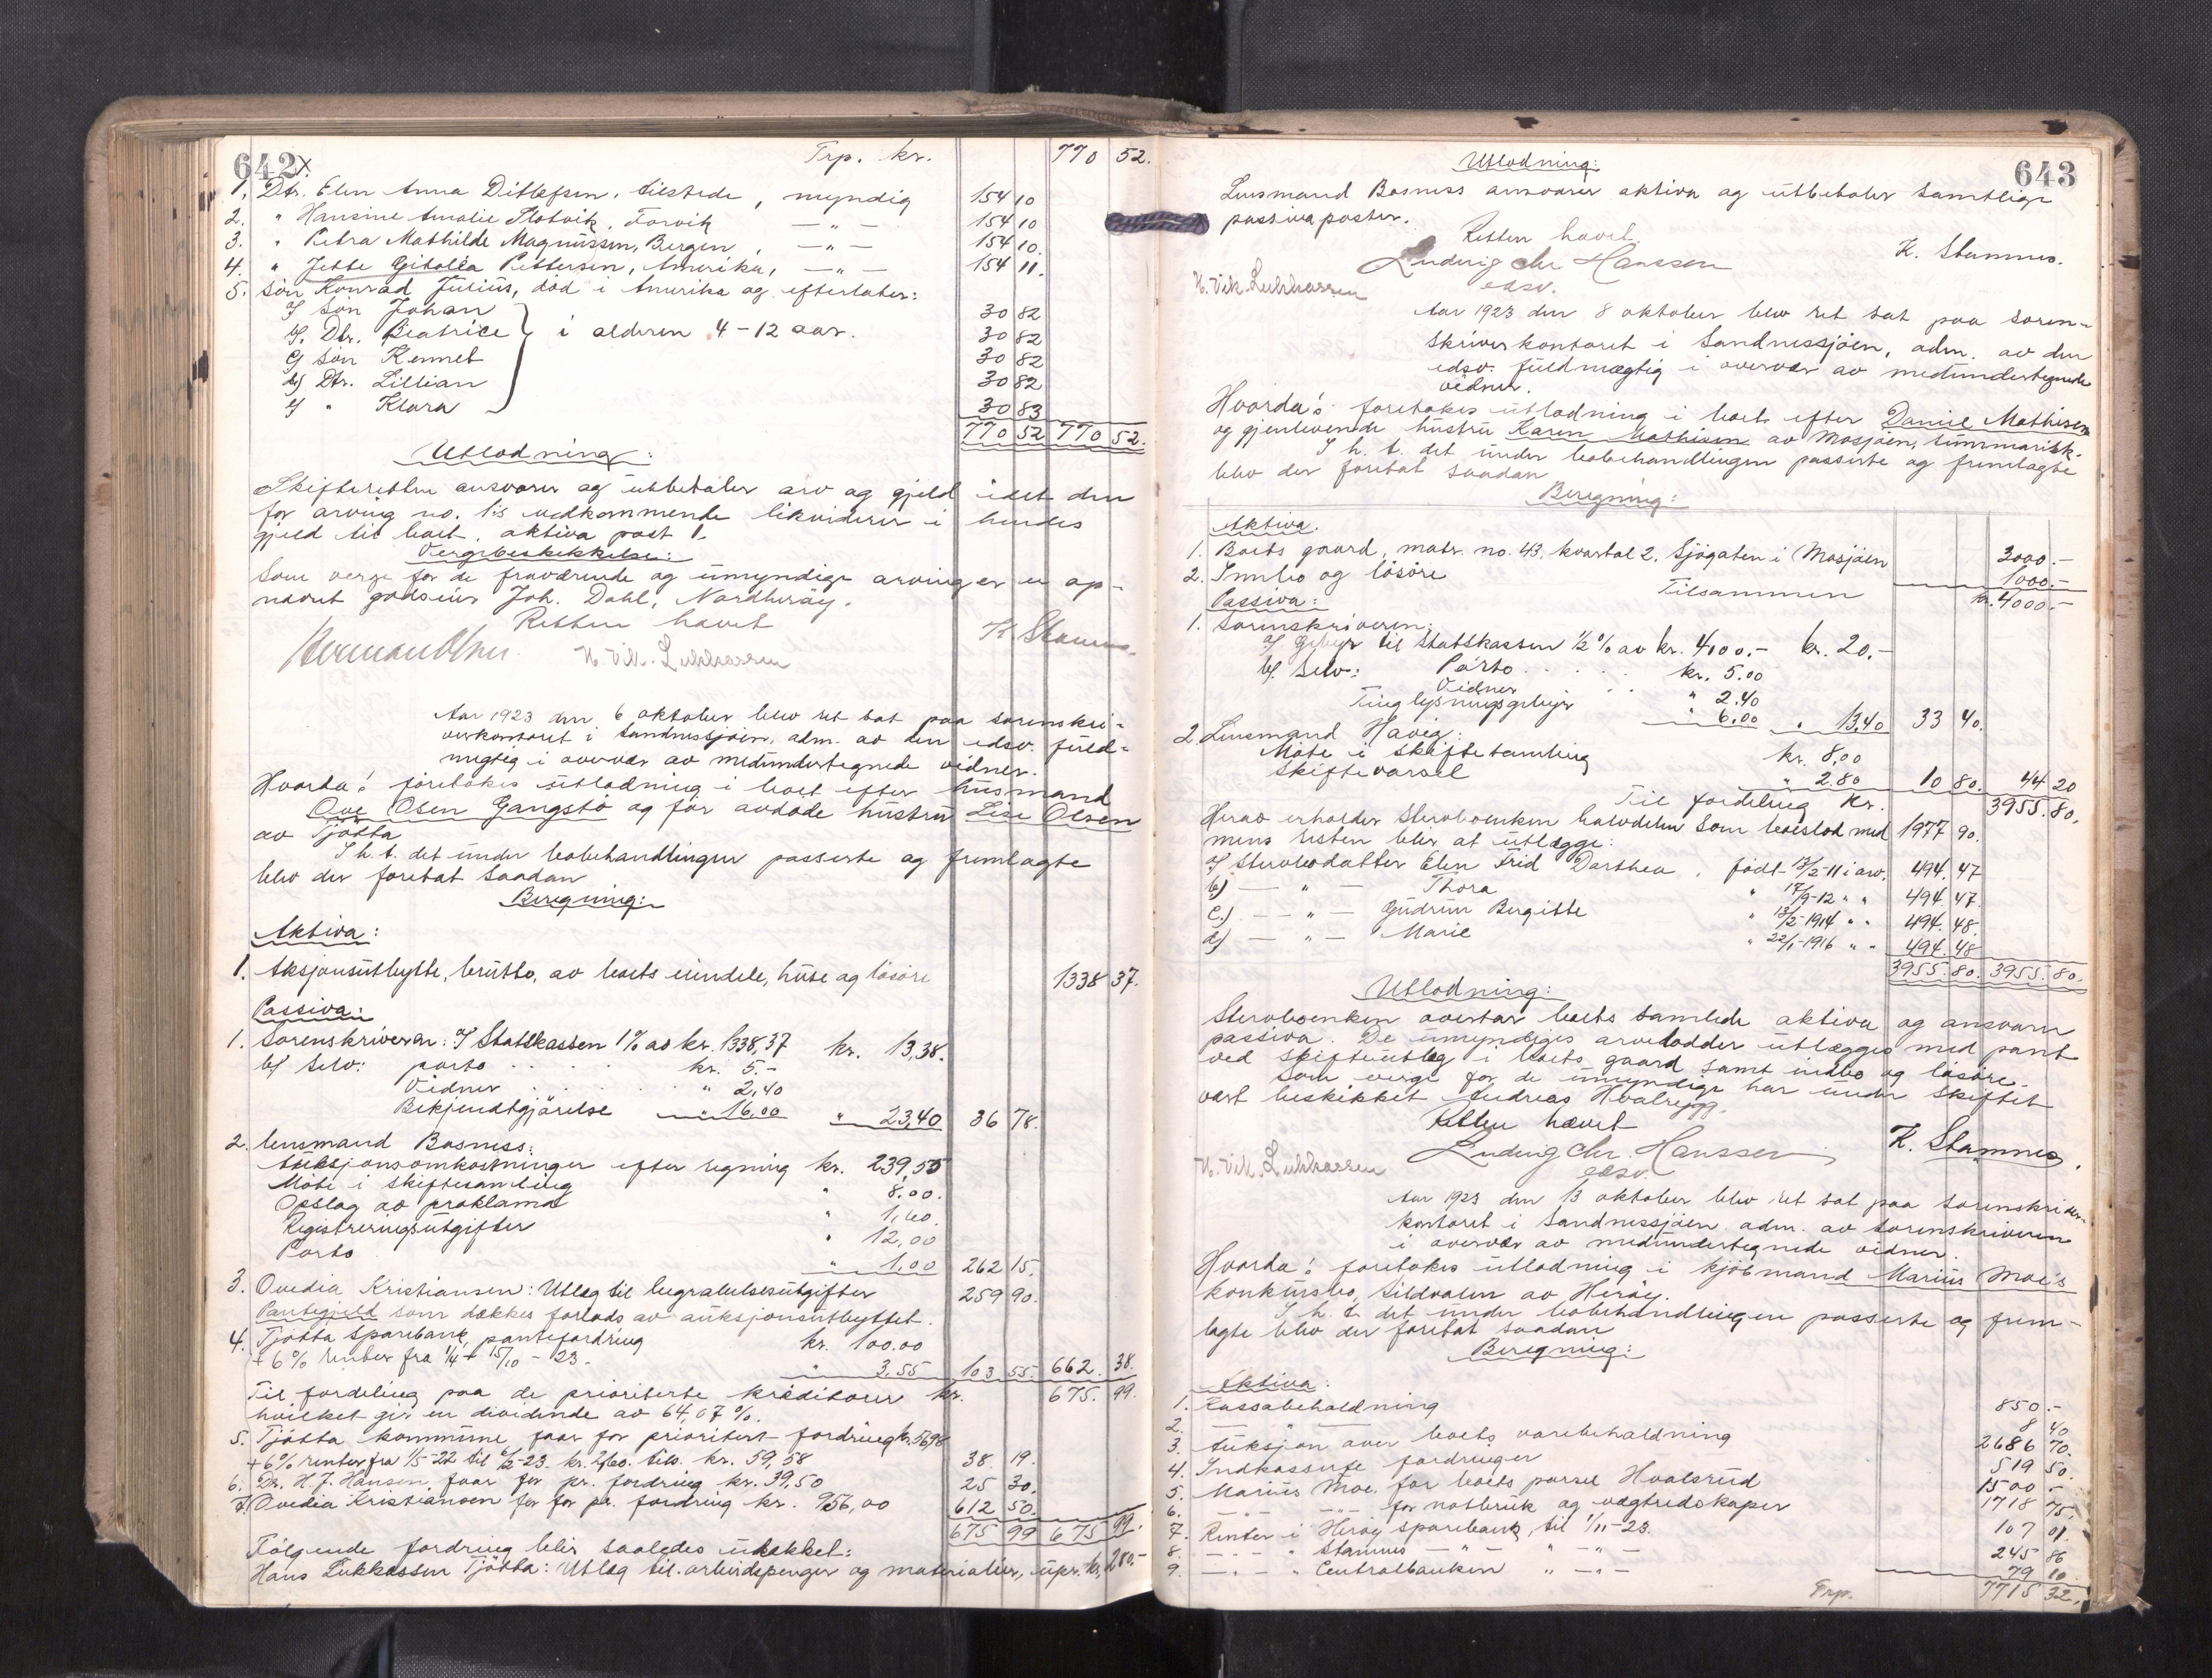 642 x
Trp. kr. 770 52.
1. Dtr. Elen Anna Ditlefsen, tilstede, myndig 154 10
2. " Hansine Amalie Flotvik, Forvik — " — 154 10
3. " Petra Mathilde Magnussen, Bergen, — " — 154 10.
4. " Jette Gitolla Pettersen, Amerika, — " — 154 11.
5. Søn Konrad Julius, død i Amerika og efterlater:
a/ Søn Johan 30 82
b/. Dtr. Beatrice } i alderen 4-12 aar. 30 82
c/ Søn Kennet 30 82
d/ Dtr. Lillian 30 82
e/ " Klara 30 83
770 52 770 52.
Utlodning:
Skifteretten ansvarer og utbetaler arv og gjeld idet den
for arving no. 1's vedkommende likviderer i hendes
gjeld til boet, aktiva post 1.
Vergebeskikkelse:
Som verge for de fraværende og umyndige arvinger er op-
nævnt godseier Joh. Dahl, Nordherøy.
Retten hævet
K. Stamnes.
Herman Olsen. H. Vik-Lukkassen
Aar 1923 den 6 oktober blev ret sat paa sorenskri-
verkontoret i Sandnessjøen, adm. av den edsv. fuld-
megtig i overvær av medundertegnede vidner.
Hvorda: foretokes utlodning i boet efter husmand
Ove Olsen Gangstø og før avdøde hustru Lise Olsen
av Tjøtta
I h. t. det under bobehandlingen passerte og fremlagte
blev der foretat saadan
Beregning:
Aktiva:
1. Aksjonsutbytte, brutto, av boets eiendele, huse og løsøre 1338 37.
Passiva:
1. Sorenskriveren: a/ Statskassen 1% av kr. 1338,37 kr. 13,38.
b/ Selv: porto . . . . kr. 5.-
Vidner . . . . " 2,40
Bekjendtgjørelse " 16,00 " 23,40 36 78.
2. Lensmand Bosness:
Auksjonsomkostninger efter regning kr. 239,55
Møte i skiftesamling " 8,00.
Opslag av proklama " 1,60.
Registreringsutgifter " 12,00
Porto " 1,00 262 15.
3. Ovedia Kristiansen: Utlæg til begravelsesutgifter 259 90.
Pantegjeld som dækkes forlods av auksjonsutbyttet.
4. Tjøtta Sparebank, pantefordring kr. 100.00
+ 6% renter fra 1/4 - 15/10 - 23. " 3,55 103 55. 662. 38.
Til fordeling paa de prioriterte kreditorer kr. 675. 99.
hvilket gir en dividende av 64,07%.
5. Tjøtta kommune faar for prioritert fordring kr. 56,98
+ 6% renter fra 1/5-22 til 6/2-23. kr. 2,60. tils. kr. 59,58 38. 19.
6. Dr. H. J. Hansen, faar for pr. fordring kr. 39,50 25 30.
7. Ovedia Kristiansen for for pr. fordring kr. 956,00 612 50.
675 99 675 99.
Følgende fordring blir saaledes udækket:
Hans Lukkassen Tjøtta: Utlæg til arbeidspenger og materialier, upr. kr. 280.-
643
Utlodning:
Lensmand Bosness ansvarer aktiva og utbetaler samtlige
passivaposter.
Retten hævet.
K. Stamnes.
Ludvig Chr Hanssen
edsv.
H. Vik-Lukkassen
Aar 1923 den 8 oktober blev ret sat paa soren-
skriverkontoret i Sandnessjøen, adm. av den
edsv. fuldmægtig i overvær av medundertegnede
vidner.
Hvorda: foretokes utlodning i boet efter Daniel Mathisen
og gjenlevende hustru Karen Mathisen av Mosjøen, summarisk.
I h. t. det under bobehandlingen passerte og fremlagte
blev der foretat saadan
Beregning:
Aktiva.
1. Boets gaard, matr. no. 43, kvartal 2, Sjøgaten i Mosjøen 3000.-
2. Innbo og løsøre 1000.-
Tilsammen kr. 4000.-
Passiva:
1. Sorenskriveren:
a/ Gebyr til Statskassen 1/2 % av kr. 4000.- kr. 20.-
b/. Selv: Porto . . . . kr. 5.00
Vidner . . " 2.40
Tinglysningsgebyr " 6.00 " 13.40 33 40.
2. Lensmand Havig:
Møte i skiftesamling kr. 8,00
Skiftevarsel " 2.80 10 80. 44 20
Til fordeling kr. 3955. 80.
Herav erholder Stervboenken halvdelen som boeslod med 1977 90.
mens resten blir at utlægge:
a/ Stervbodatter Elen Frid Dorthea, født 17/2-11 i arv. 494. 47
b) — " — Thora " 17/9-12 " " 494. 47.
c.) — " — Gudrun Bergitte " 13/2-1914 " " 494. 48.
d) — " — Marie " 22/1-1916 " " 494. 48
3955. 80. 3955. 80.
Utlodning:
Stervboenken overtar boets samlede aktiva og ansvarer
passiva. De umyndiges arvelodder utlægges med pant
ved skifteutlæg i boets gaard samt indbo og løsøre.
Som verge for de umyndige har under skiftet
vært beskikket Andreas Hvalrygg.
Retten hævet
Ludvig Chr. Hanssen K. Stamnes.
edsv.
H. Vik-Lukkassen
Aar 1923 den 13 oktober blev ret sat paa sorenskriver-
kontoret i Sandnessjøen adm. av sorenskriveren
i overvær av medundertegnede vidner.
Hvorda: foretokes utlodning i kjøbmand Marius Moe's
konkursbo, Sildvalen av Herøy.
I h. t. det under bobehandlingen passerte og frem-
lagte blev der foretat saadan
Beregning:
Aktiva:
1. Kassabeholdning 850.-
2. " 8 40
3. Auksjon over boets varebeholdning 2686 70.
4. Indkasserte fordringer 519 50.
5. Marius Moe, for boets parsel Hvalsrud 1500 -
6. — " — for notbruk og vegtredskaper 1718 75.
7. Renter i Herøy sparebank, til 1/11-23. 107 01.
8. — " — " Stamnes — " — " — " — 245 86
9. — " — " Centralbanken " — " — 79 10
Trp. 7715 32.